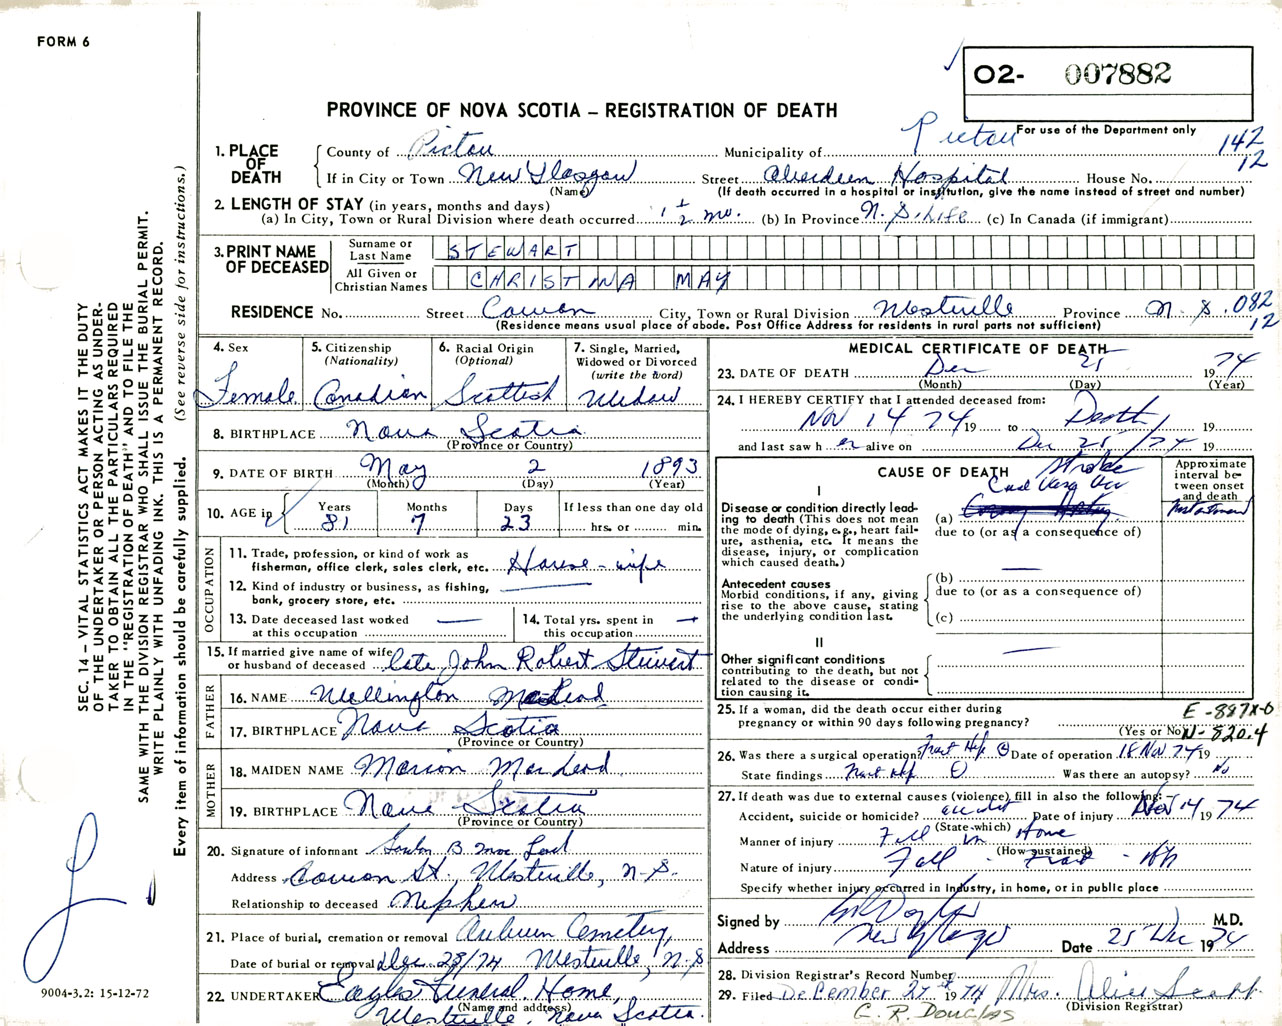 FORM 6
O2- 007882
PROVINCE OF NOVA SCOTIA – REGISTRATION OF DEATH
For use of the Department only
Pictou
142
12
1. PLACE OF DEATH
County of Pictou Municipality of
If in City or Town New Glasgow Street Aberdeen Hospital House No.
(Name) (If death occurred in a hospital or institution, give the name instead of street and number)
2. LENGTH OF STAY (in years, months and days)
(a) In City, Town or Rural Division where death occurred 1 1/2 mo. (b) In Province N.S. Life (c) In Canada (if immigrant)
3. PRINT NAME OF DECEASED
Surname or Last Name STEWART
All Given or Christian Names CHRISTINA MAY
RESIDENCE No. Street Cowan City, Town or Rural Division Westville Province N.S. 082
12
(Residence means usual place of abode. Post Office Address for residents in rural parts not sufficient)
4. Sex Female
5. Citizenship (Nationality) Canadian
6. Racial Origin (Optional) Scottish
7. Single, Married, Widowed or Divorced (write the word) Widow
8. BIRTHPLACE Nova Scotia
(Province or Country)
9. DATE OF BIRTH May 2 1893
(Month) (Day) (Year)
10. AGE in Years Months Days If less than one day old
81 7 23 hrs. or min.
OCCUPATION
11. Trade, profession, or kind of work as fisherman, office clerk, sales clerk, etc. House-wife
12. Kind of industry or business, as fishing, bank, grocery store, etc.
13. Date deceased last worked at this occupation
14. Total yrs. spent in this occupation
15. If married give name of wife or husband of deceased late John Robert Stewart
FATHER
16. NAME Wellington MacLeod
17. BIRTHPLACE Nova Scotia
(Province or Country)
MOTHER
18. MAIDEN NAME Marion MacLeod
19. BIRTHPLACE Nova Scotia
(Province or Country)
20. Signature of informant B. MacLeod
Address Cowan St., Westville, N.S.
Relationship to deceased Nephew
21. Place of burial, cremation or removal Auburn Cemetery,
Date of burial or removal Dec 28/74 Westville, N.S
22. UNDERTAKER Eagles Funeral Home,
(Name and address)
Westville, Nova Scotia.
MEDICAL CERTIFICATE OF DEATH
23. DATE OF DEATH Dec 25 1974
(Month) (Day) (Year)
24. I HEREBY CERTIFY that I attended deceased from:
Nov 14 74 19 to Death 19
and last saw h er alive on Dec 25/74 19
CAUSE OF DEATH
Approximate interval between onset and death
I
Disease or condition directly leading to death (This does not mean the mode of dying, e.g., heart failure, asthenia, etc. It means the disease, injury, or complication which caused death.)
Stroke
(a)
due to (or as a consequence of)
Antecedent causes
Morbid conditions, if any, giving rise to the above cause, stating the underlying condition last.
(b)
due to (or as a consequence of)
(c)
II
Other significant conditions contributing to the death, but not related to the disease or condition causing it.
25. If a woman, did the death occur either during pregnancy or within 90 days following pregnancy?
(Yes or No)
E-887X-0
N-820.4
26. Was there a surgical operation? Fract Hip Date of operation 18 Nov 74 19
State findings Fract Hip Was there an autopsy? No
27. If death was due to external causes (violence) fill in also the following:
Accident, suicide or homicide? accident Date of injury Nov 14 1974
(State which)
Manner of injury Fall in Home
(How sustained)
Nature of injury Fall - Fract - Hip
Specify whether injury occurred in Industry, in home, or in public place
Signed by M.D.
Address New Glasgow Date 25 Dec 1974
28. Division Registrar's Record Number
29. Filed December 27 1974 Mrs. Alice Scott
(Division Registrar)
C. R. DOUGLAS
SEC. 14 – VITAL STATISTICS ACT MAKES IT THE DUTY
OF THE UNDERTAKER OR PERSON ACTING AS UNDER-
TAKER TO OBTAIN ALL THE PARTICULARS REQUIRED
IN THE "REGISTRATION OF DEATH" AND TO FILE THE
SAME WITH THE DIVISION REGISTRAR WHO SHALL ISSUE THE BURIAL PERMIT.
WRITE PLAINLY WITH UNFADING INK. THIS IS A PERMANENT RECORD.
Every item of information should be carefully supplied. (See reverse side for instructions.)
9004-3.2: 15-12-72